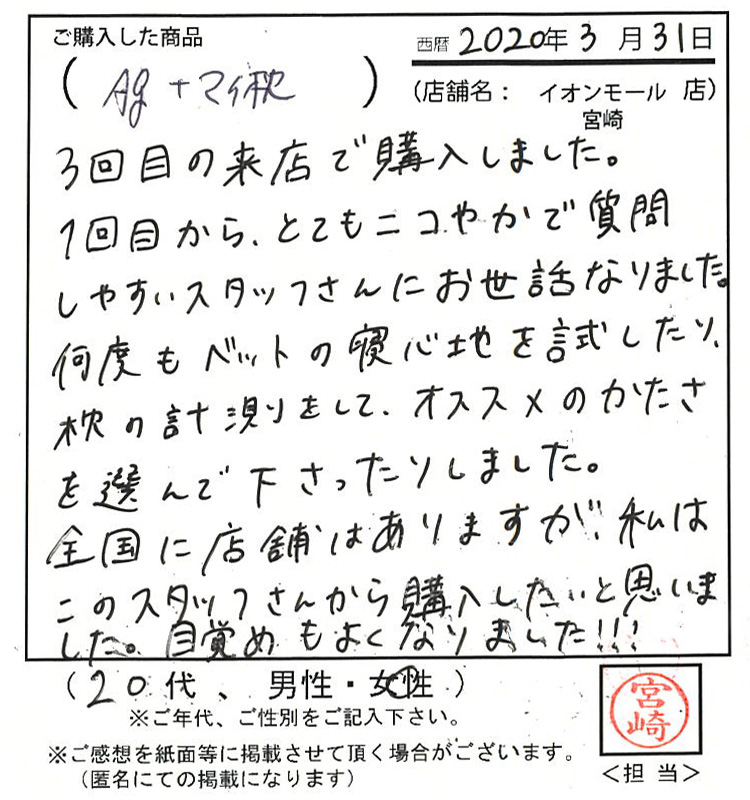 ご購入した商品
西暦 2020年 3月 31日
( Ag+マイ枕 )
(店舗名： イオンモール 店)
宮崎
3回目の来店で購入しました。
1回目から、とてもニコやかで質問
しやすいスタッフさんにお世話なりました。
何度もベットの寝心地を試したり、
枕の計測りをして、オススメのかたさ
を選んで下さったりしました。
全国に店舗はありますが、私は
このスタッフさんから購入したいと思いま
した。目覚めもよくなりました!!!
(20代、男性・女性)
※ご年代、ご性別をご記入下さい。
宮崎
※ご感想を紙面等に掲載させて頂く場合がございます。
(匿名にての掲載になります)
＜担 当＞